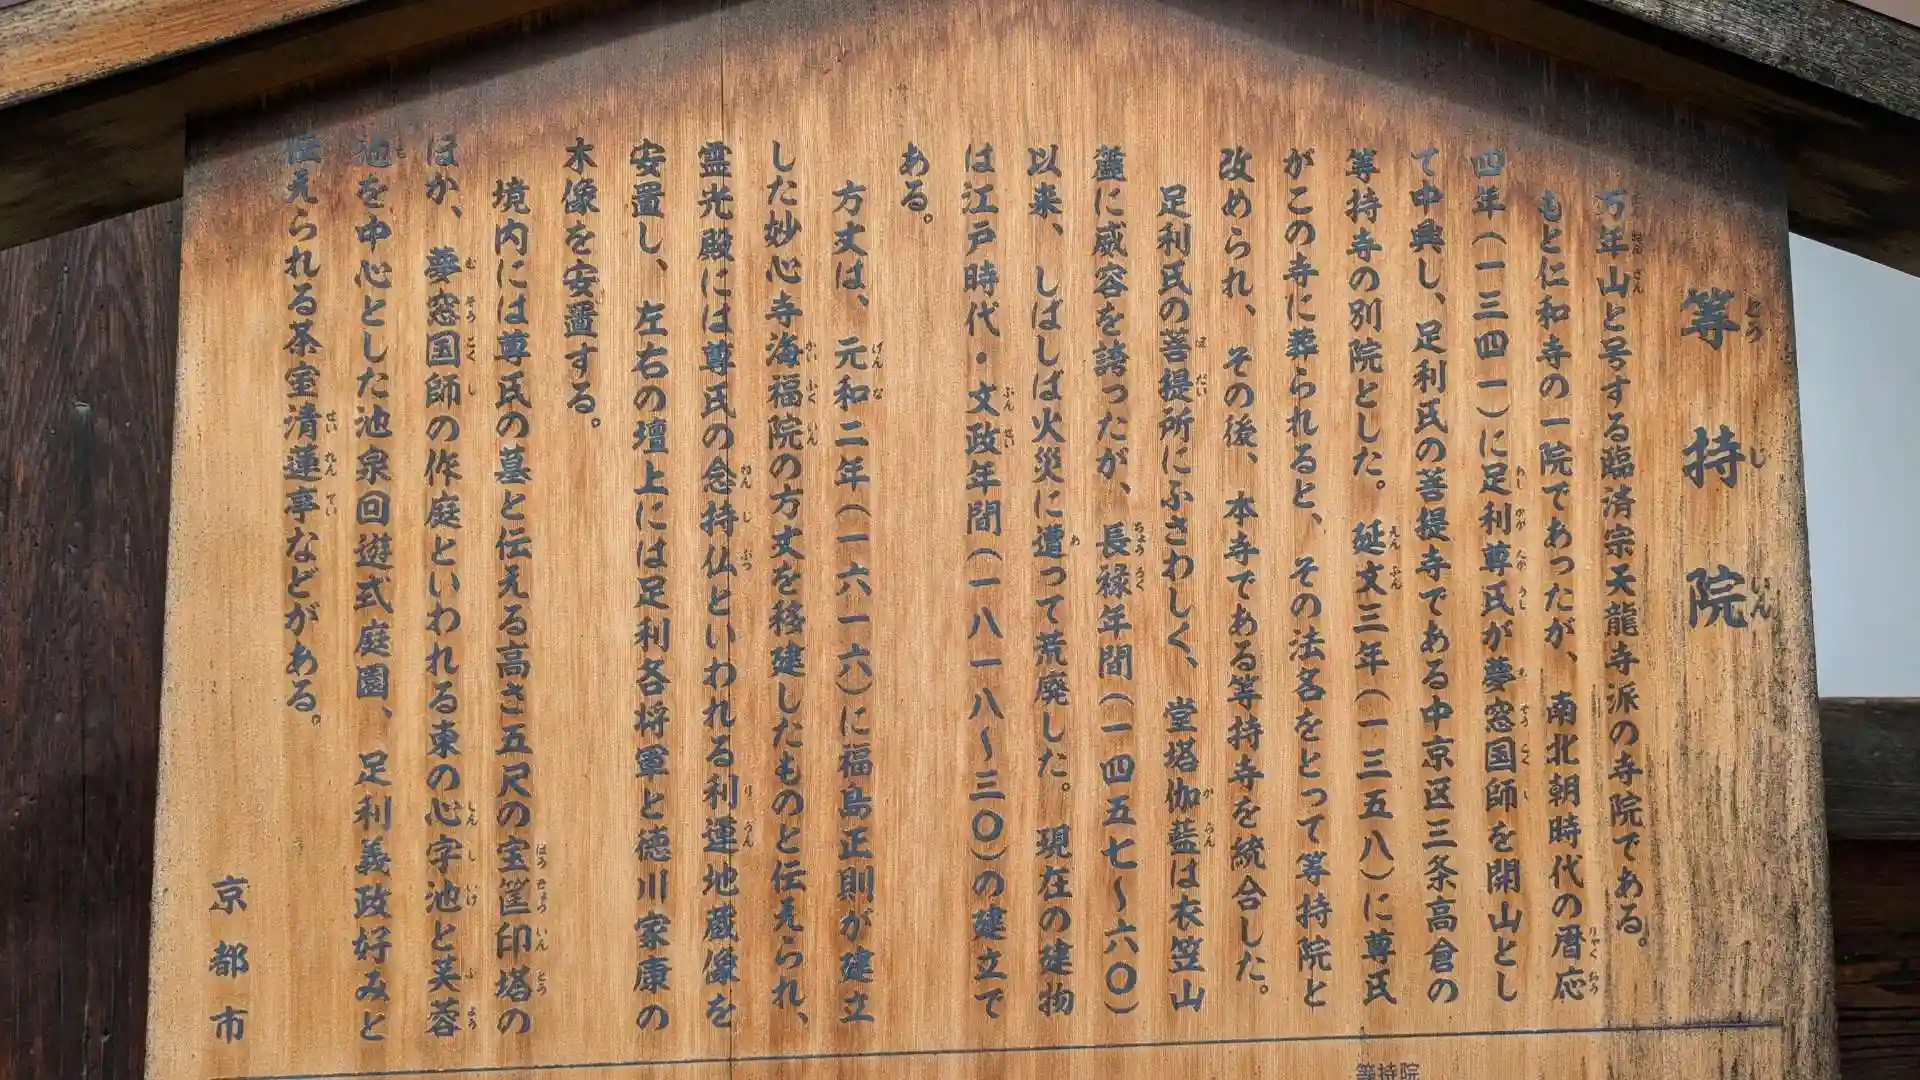 等持院
万年山と号する臨済宗天龍寺派の寺院である。
もと仁和寺の一院であったが、南北朝時代の暦応
四年(一三四一)に足利尊氏が夢窓国師を開山とし
て中興し、足利氏の菩提寺である中京区三条高倉の
等持寺の別院とした。延文三年(一三五八)に尊氏
がこの寺に葬られると、その法名をとって等持院と
改められ、その後、本寺である等持寺を統合した。
足利氏の菩提所にふさわしく、堂塔伽藍は衣笠山
麓に威容を誇ったが、長禄年間(一四五七〜六〇)
以来、しばしば火災に遭って荒廃した。現在の建物
は江戸時代・文政年間(一八一八〜三〇)の建立で
ある。
方丈は、元和二年(一六一六)に福島正則が建立
した妙心寺海福院の方丈を移建したものと伝えられ、
霊光殿には尊氏の念持仏といわれる利運地蔵像を
安置し、左右の壇上には足利各将軍と徳川家康の
木像を安置する。
境内には尊氏の墓と伝える高さ五尺の宝筐印塔の
ほか、夢窓国師の作庭といわれる東の心字池と芙蓉
池を中心とした池泉回遊式庭園、足利義政好みと
伝えられる茶室清蓮亭などがある。
京都市
等持院